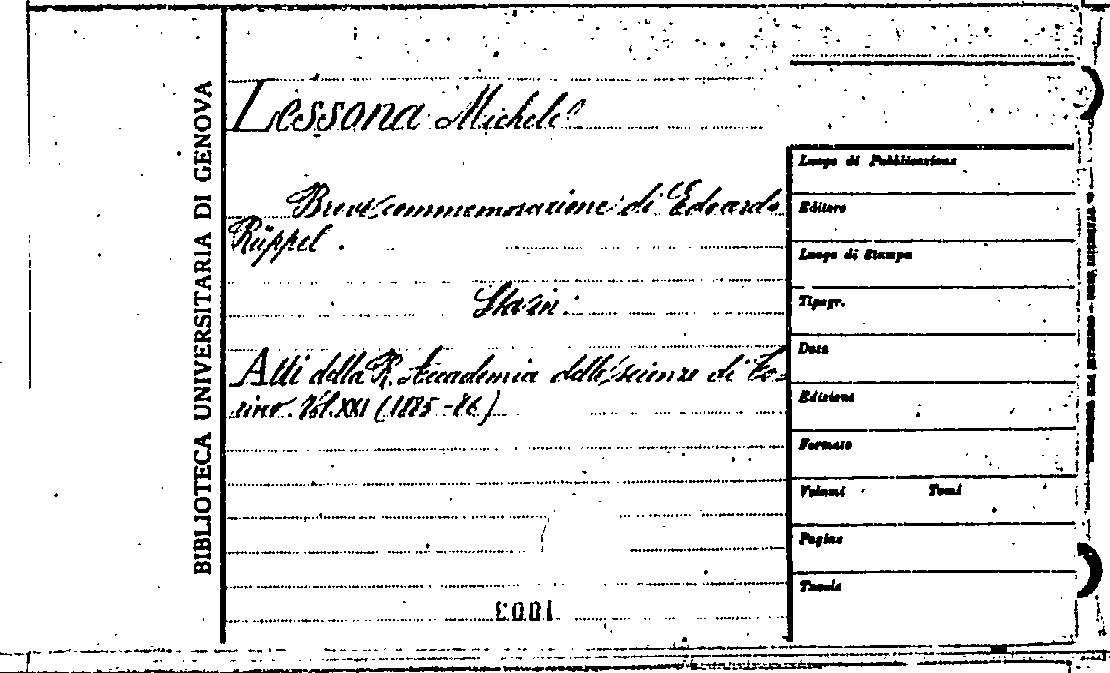 BIBLIOTECA UNIVERSITARIA DI GENOVA
Lessona Michele
Breve commemorazione di Edoardo
Rüppel.
Sta in:
Atti della R. Accademia delle scienze di To-
rino. Vol. XXI (1885-86)
1003
Luogo di Pubblicazione
Editore
Luogo di Stampa
Tipogr.
Data
Edizione
Formato
Volumi Tomi
Pagine
Tavole